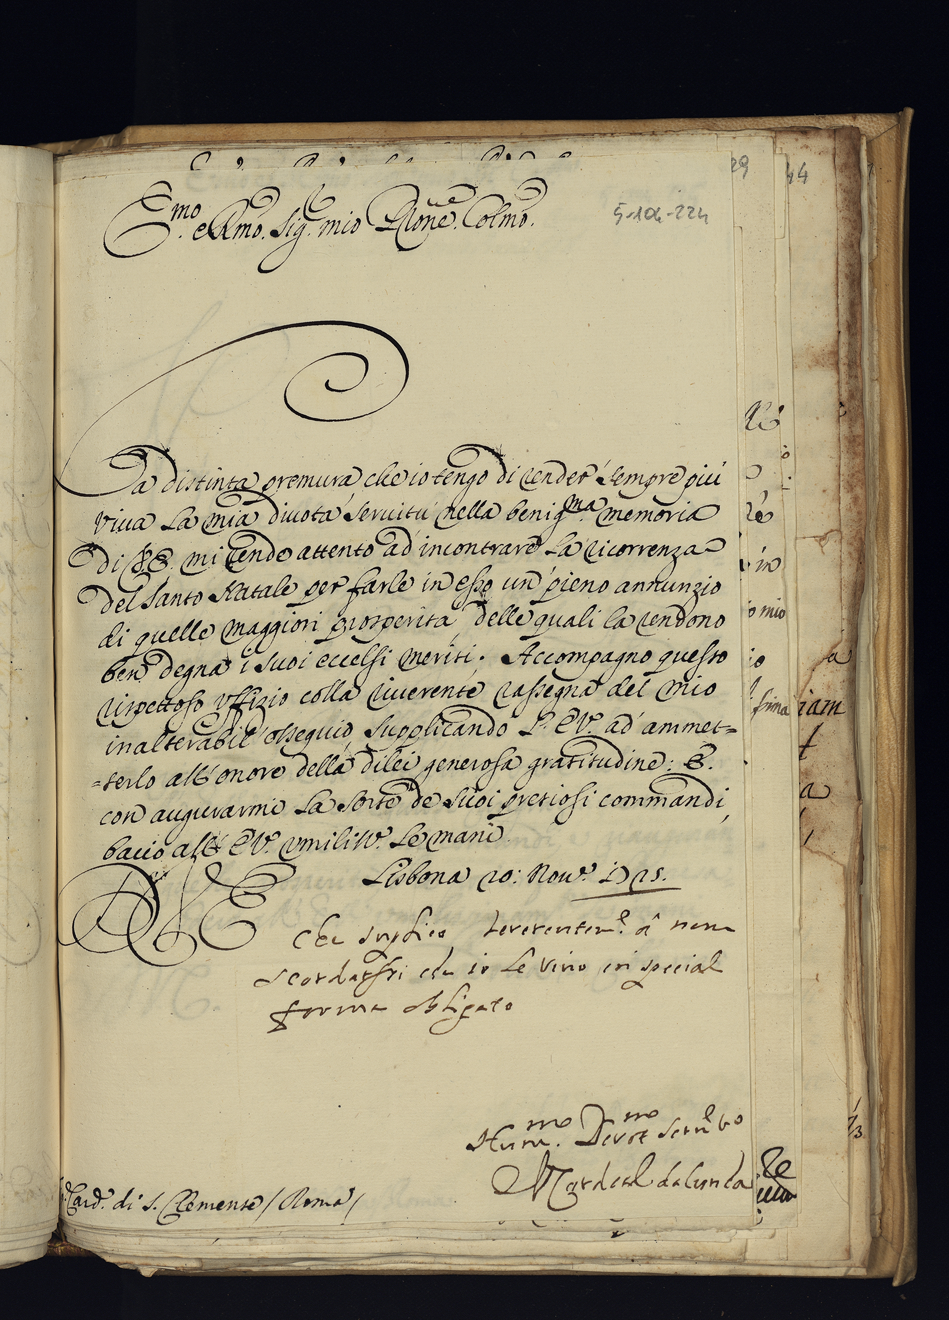 29
44
Emo. e Rmo. Sig. mio Prone. Colmo.
5-104-224
La distinta premura che io tengo di render sempre più
viva la mia divota servitù nella benigma. memoria
di V. E. mi rende attento ad incontrare la ricorrenza
del Santo Natale per farle in esso un pieno annunzio
di quelle maggiori prosperità delle quali la rendono
ben degna i suoi eccelsi meriti. Accompagno questo
rispettoso uffizio colla riverente rassegna del mio
inalterabil' ossequio supplicando l' E.V. ad ammet=
=terlo all' onore della dilei generosa gratitudine: E.
con augurarmi la sorte de suoi pretiosi commandi
bacio all' E.V. umilim. le mani.
Lisbona 20: Nov. 1725.
Che suplico reverentem. à non
scordarssi che io le vivo in special
forma obligato
Hum.mo Dev.mo
Card. di S. Clemente / Roma /